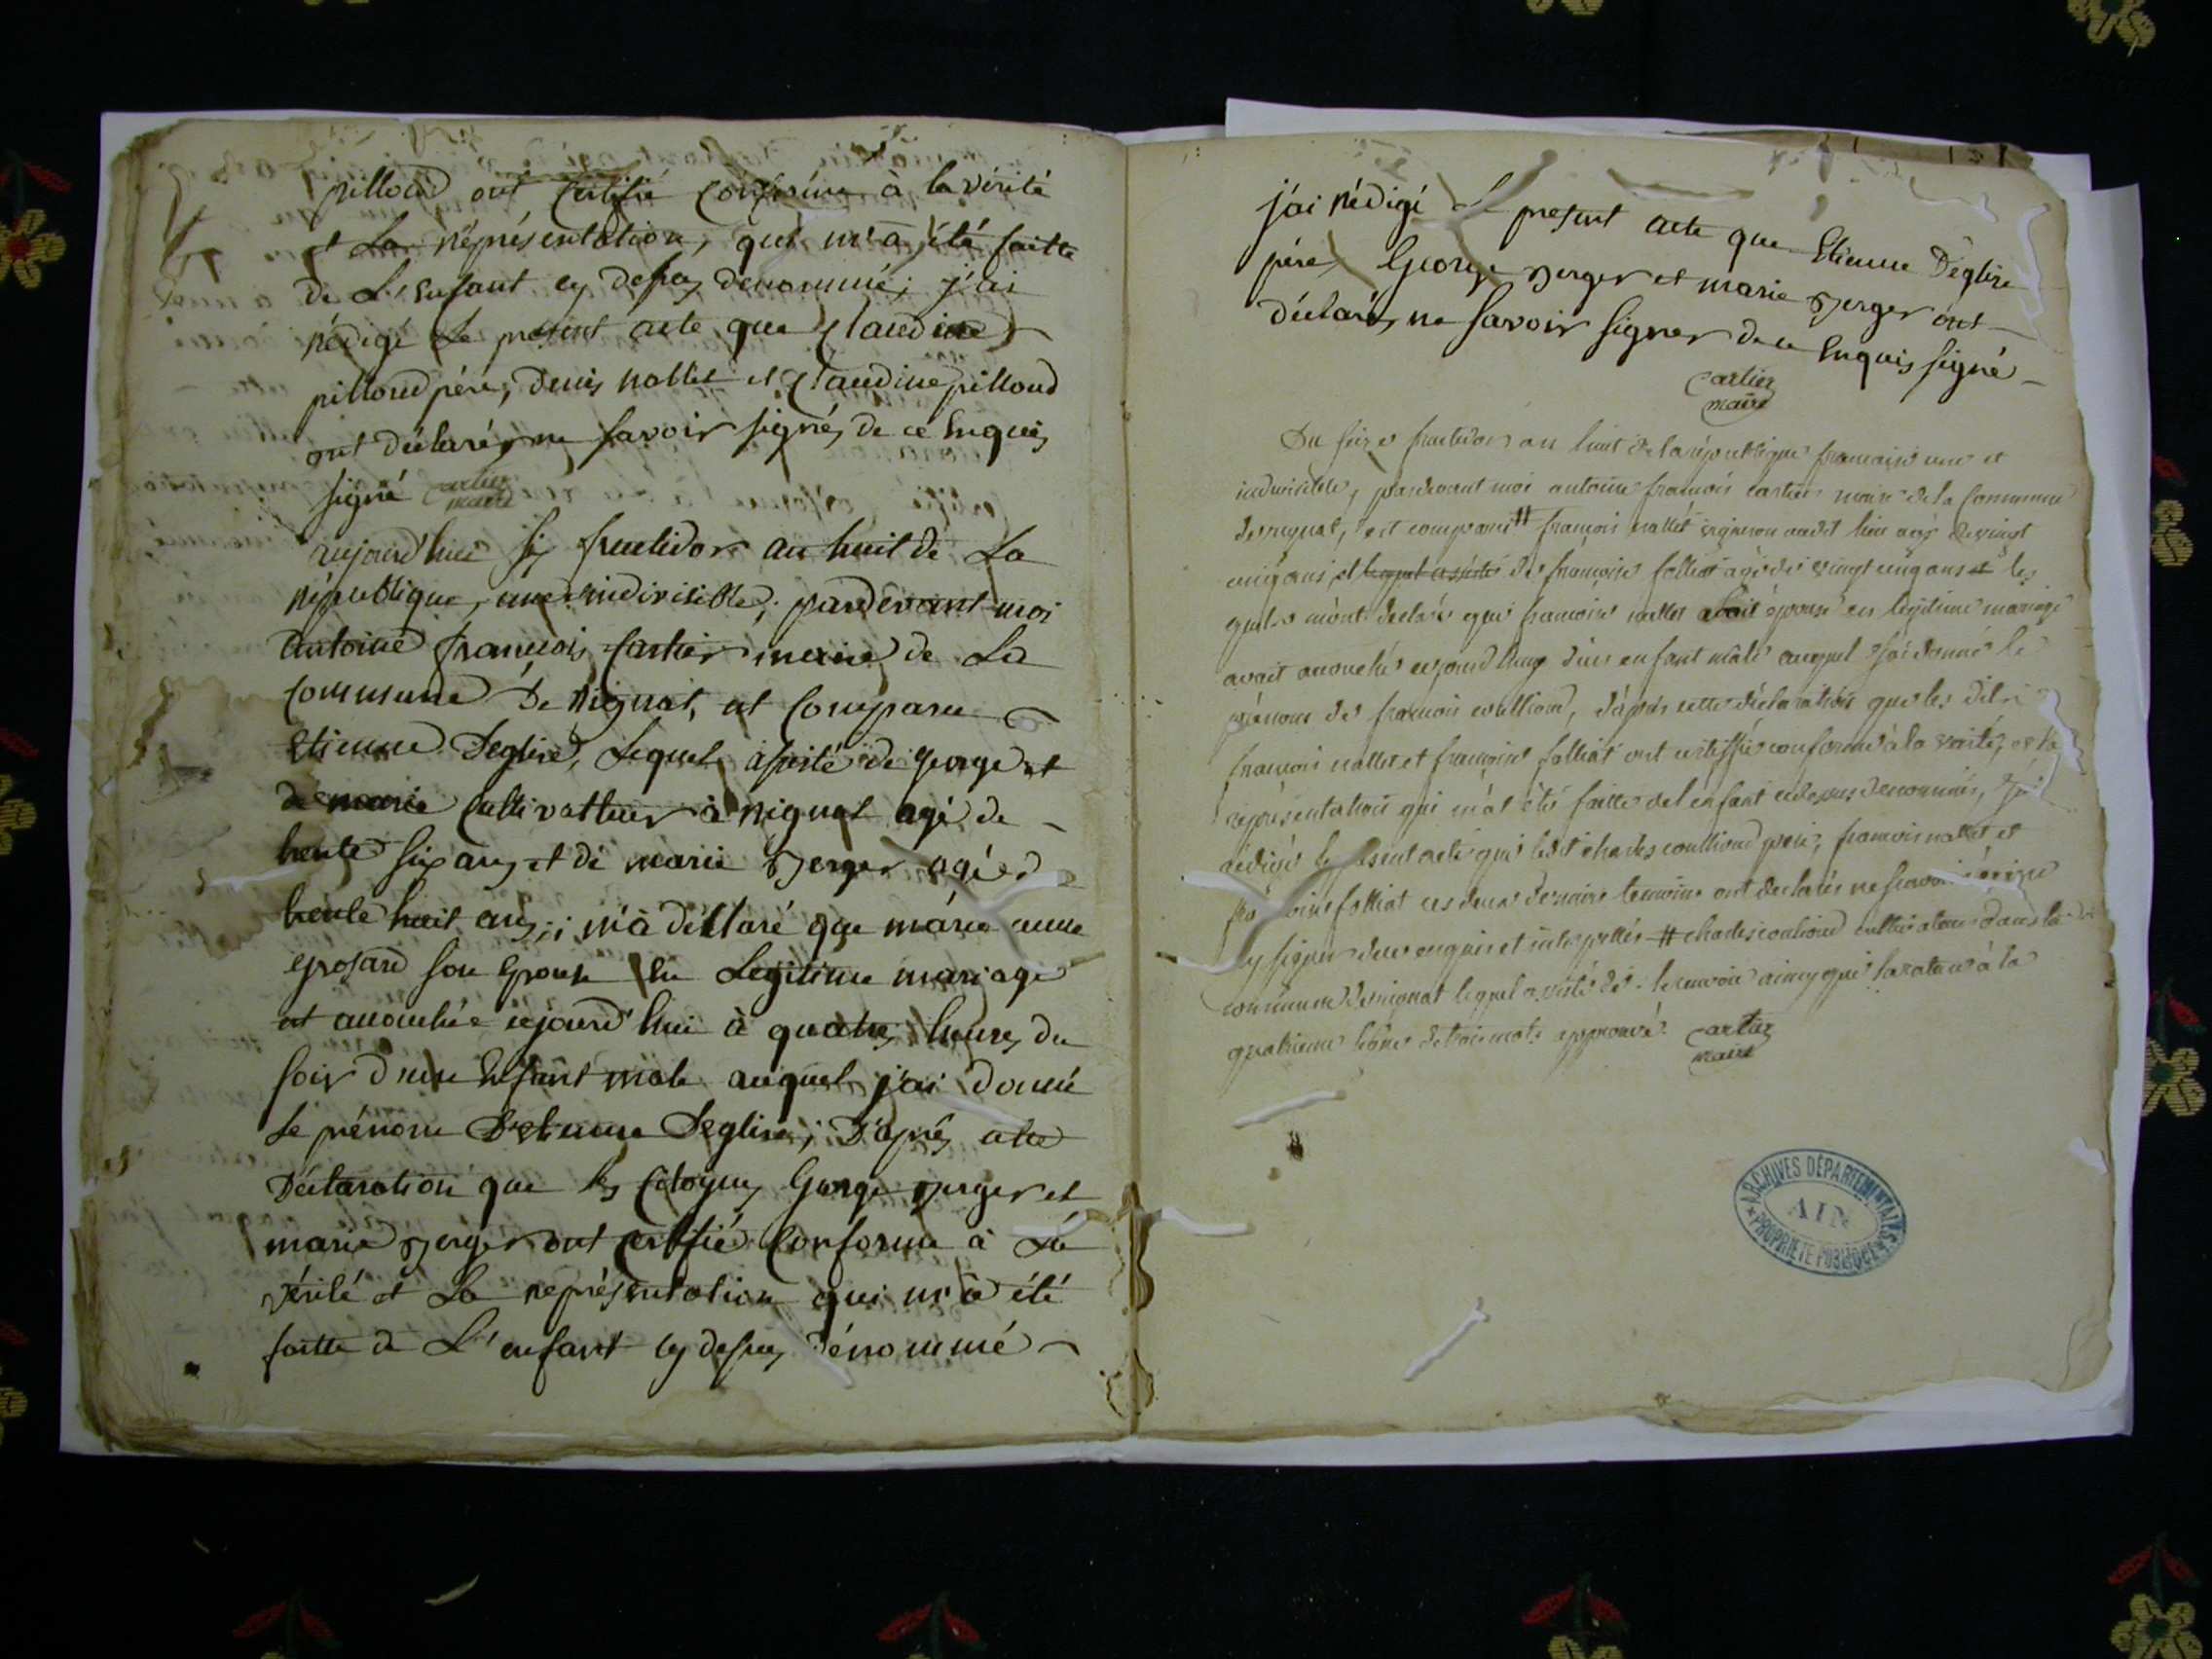 pilloud ont certifié conforme à la vérité
et La réprésentation, qui m'a été faitte
de L'enfant cy dessus denommé; j'ai
rédigé Le présent acte que Claudine
pilloud pére, denis nallet et Claudine pilloud
ont déclarés ne savoir signés de ce Enquis
signé cartier
maire
aujourd'hui six fructidor an huit de La
république, une indivisible; pardevant moi
Antoine françois Cartier maire de La
Commune De Rignat, est Comparu
Etienne Deglise, Lequel assisté de george et
de marie Cultivatteur à Rignat agé de
trente six ans et de marie Verger agé d
trente huit ans; m'à déclaré que marie anne
son Epouse En Legitime mariage
est accouchée cejourd'hui à quatre heures du
soir d'un Enfant mâle auquel j'ai donné
Le prénom D'etienne Deglise; D'après cette
Déclaration que les Citoyens George Verger et
marie Verger ont certifié Conforme à La
vérité et La représentation qui m'a été
faitte de L'enfant cy dessus dénommé
j'ai rédigé Le present acte que Etienne Deglise
pére, George Verger et marie Verger ont
déclarés ne savoir signer de ce Enquis signé
cartier
maire
Du seize fructidor an huit de la république francaise une et
indivisible, pardevant moi antoine françois cartier maire de la Commune
de rignat, est comparu # françois nallet vigneron audit lieu agé de vingt
cinq ans, et lequel assisté de françoise folliat agé de vingt cinq ans et les
quels m'ont declaré que françoise nallet avait épousé en legitime mariage
avait accouché cejourdhuy d'un enfant mâle auquel j'ai donné le
prénom de françois coullioud, d'après cette déclaration que les dits
francois nallet et françoise folliat ont certiffié conforme à la vérité, et la
représentation qui m'at été faitte de l'enfant cidessus denommé, j'ai
rédigé le présent acte que ledit charles coullioud pere, francois nallet et
folliat ces deux derniers temoins ont declarés ne scavoir écrire
ny signer de ce enquis et interpellés # charles coulioud cultivateur dans la
commune de rignat lequel assisté de - le renvoi ainsy que la rature à la
quatrieme ligne de trois mots approuvé. cartier
maire
ARCHIVES DÉPARTEMENTALES
AIN
PROPRIÉTÉ PUBLIQUE